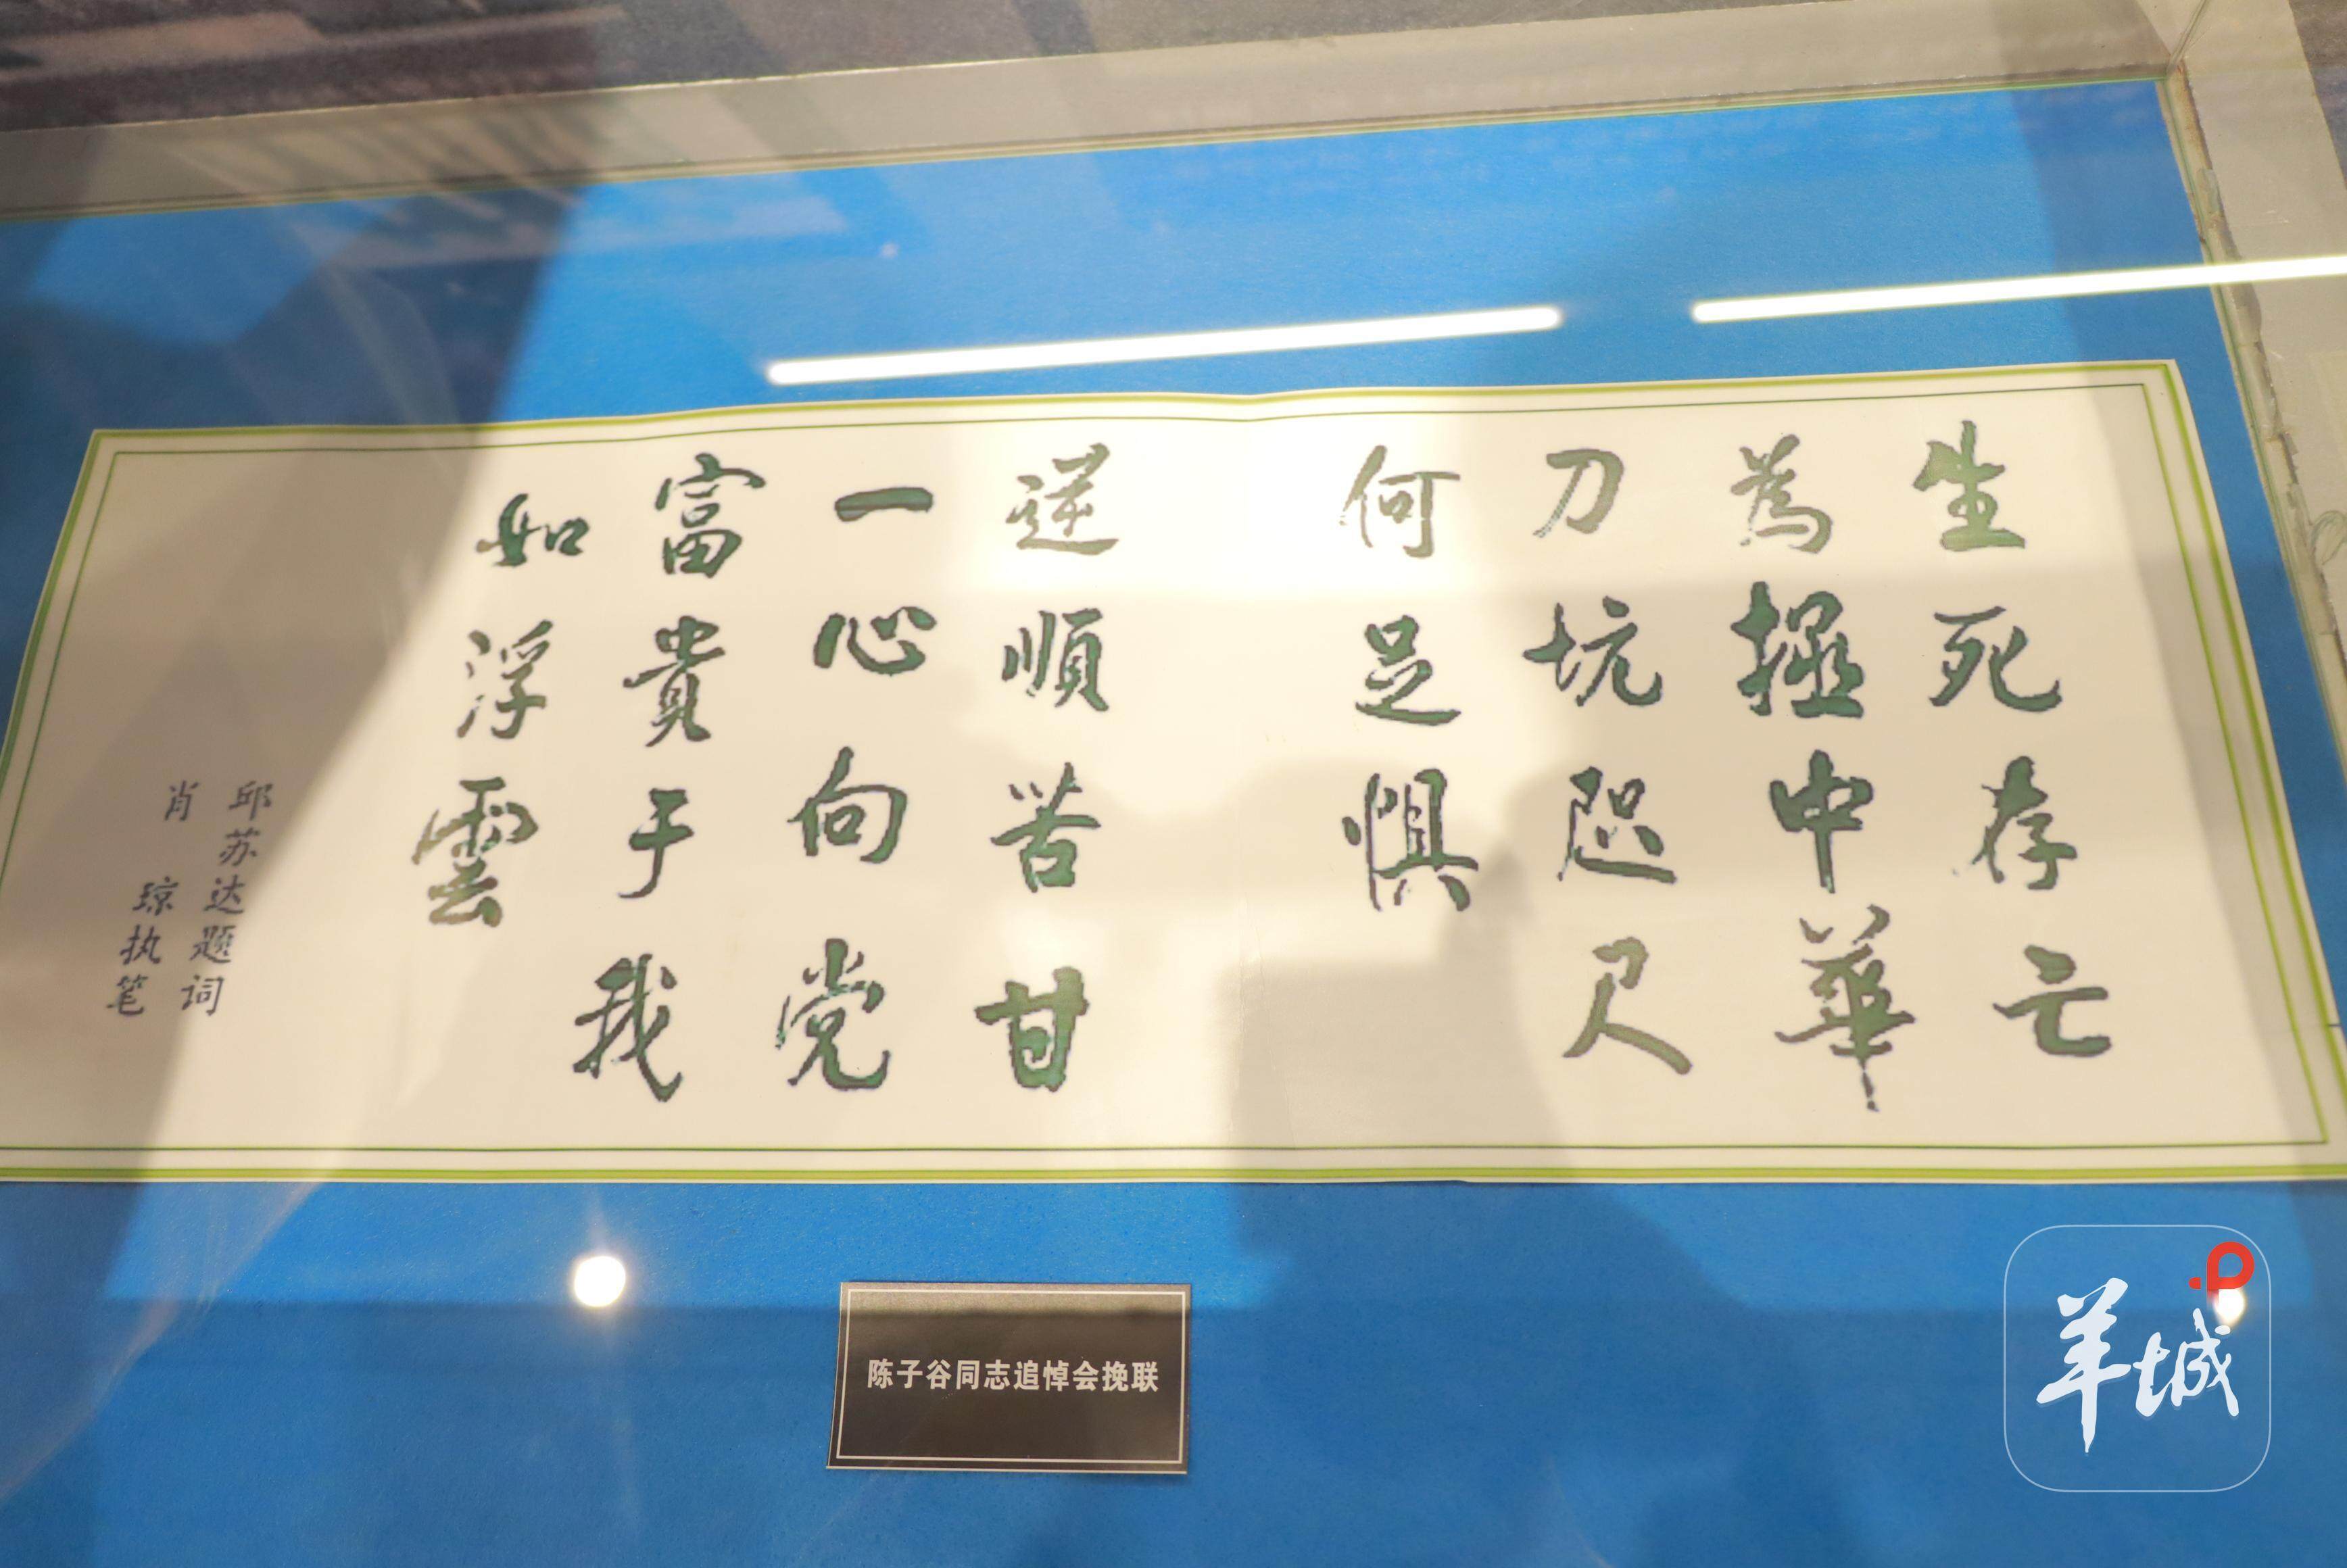 生死存亡
為拯中華
刀坑咫尺
何足惧
逆順苦甘
一心向党
富貴于我
如浮雲
邱苏达题词
肖琼执笔
陈子谷同志追悼会挽联
羊城